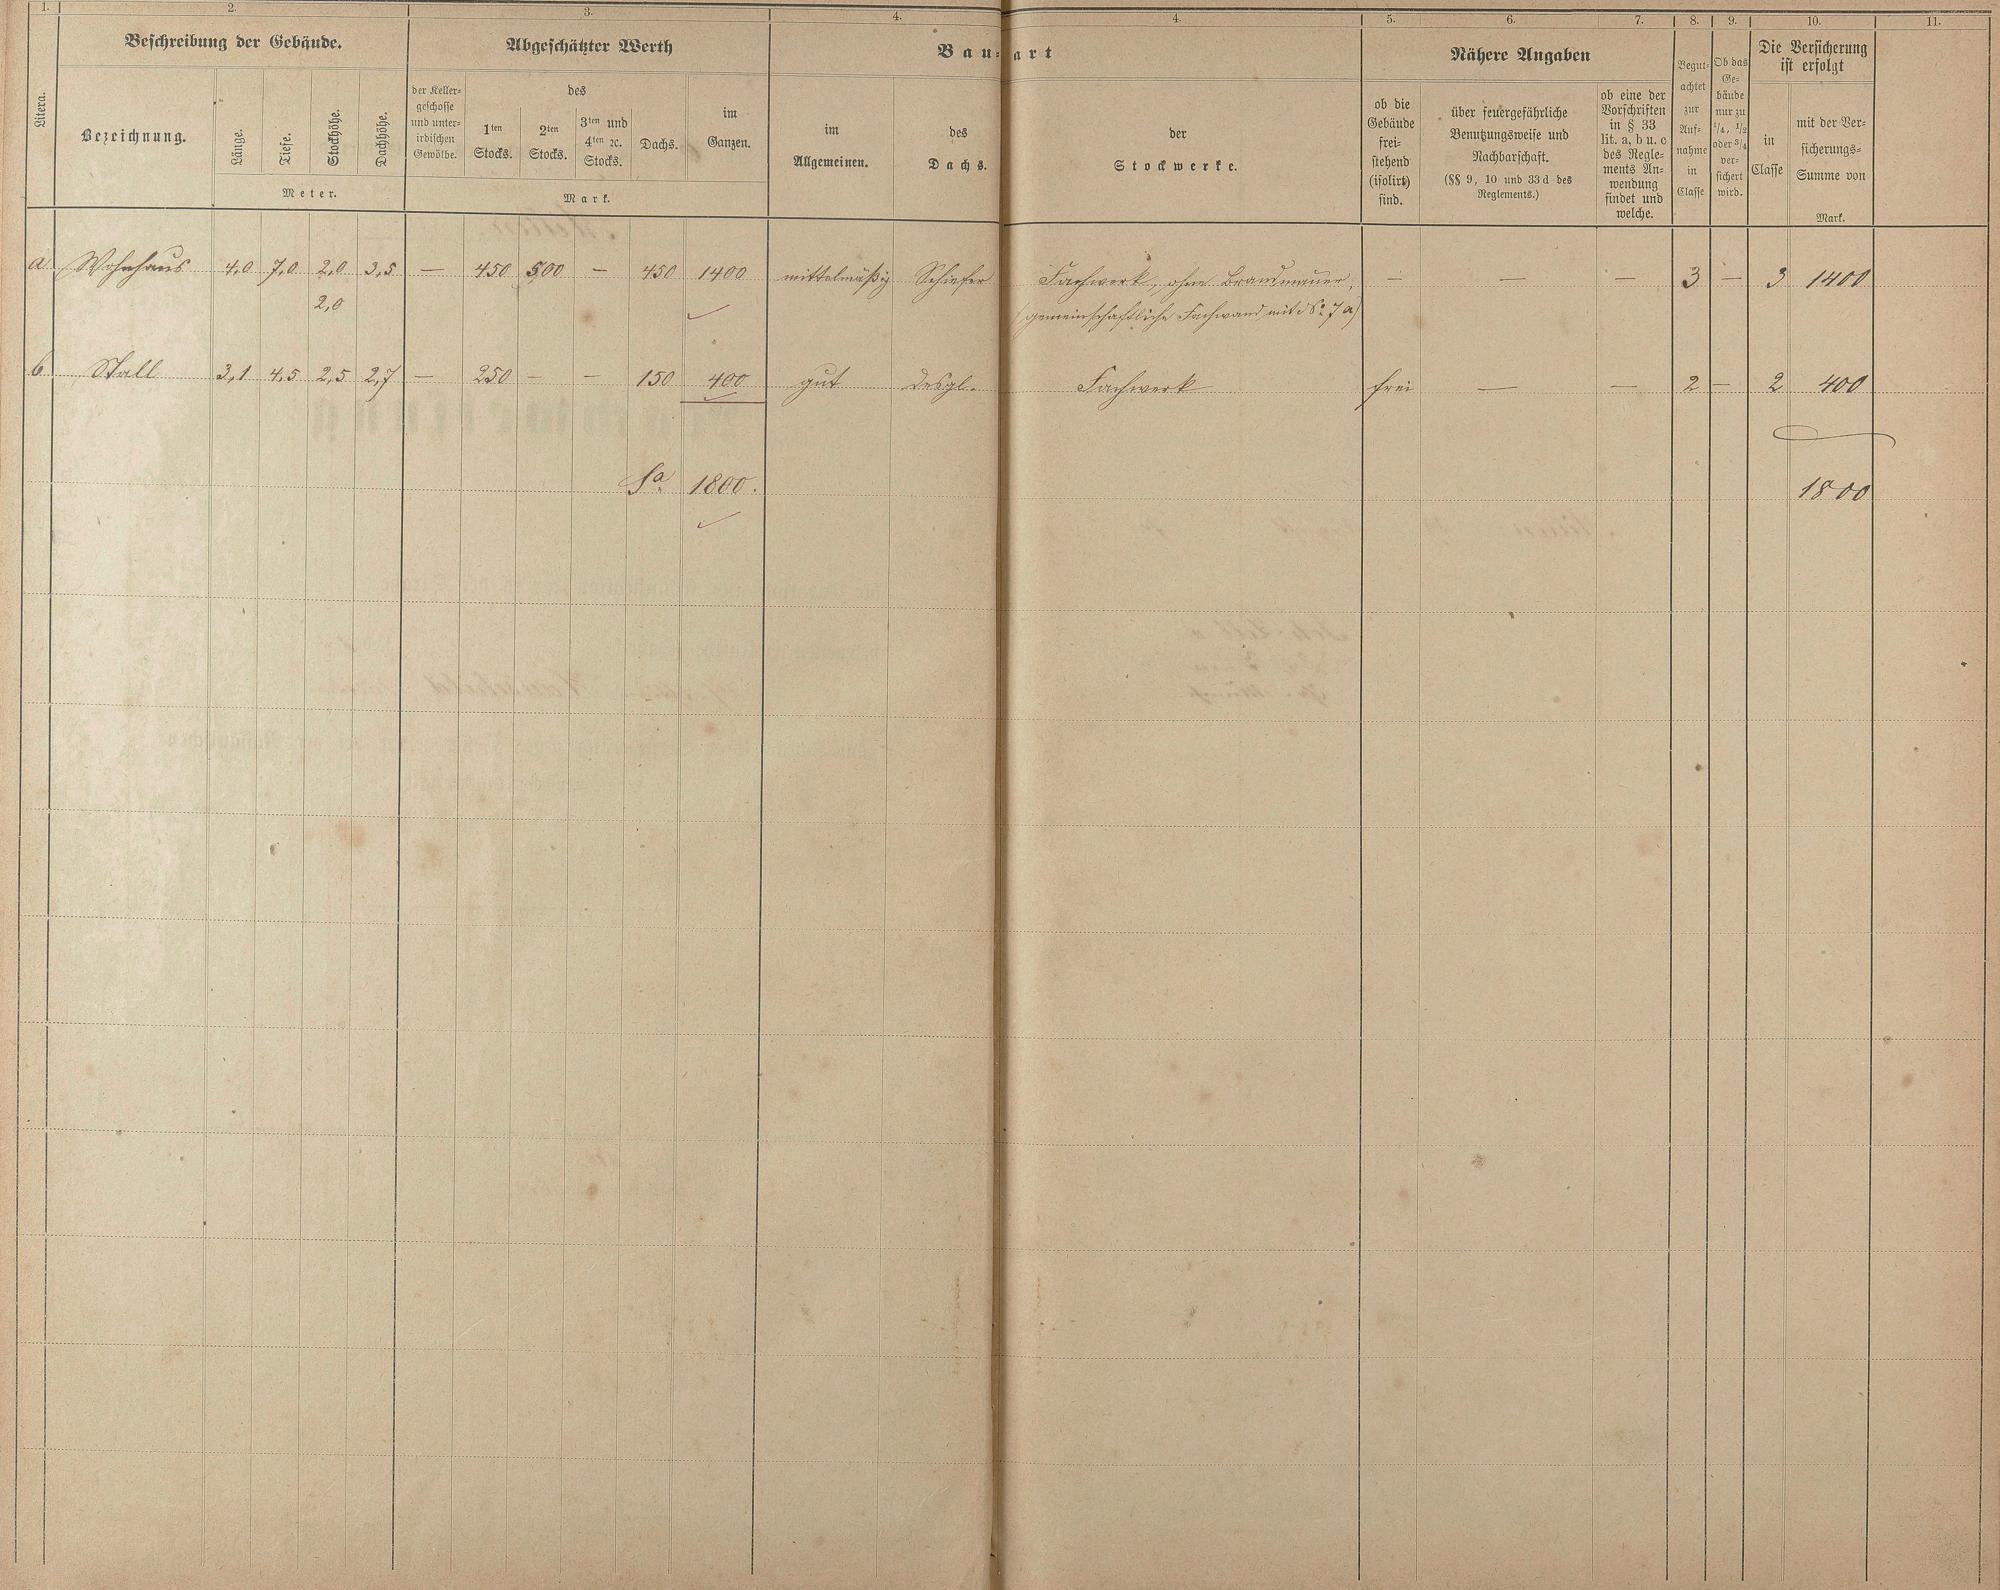 1. 2. 3. 4. 4. 5. 6. 7. 8. 9. 10. 11.
Beschreibung der Gebäude. Abgeschätzter Werth Bau-art Nähere Angaben Die Versicherung
ist erfolgt
Litera.
Bezeichnung.
Länge.
Tiefe.
Stockhöhe.
Dachhöhe.
Meter.
der Keller-
geschosse
und unter-
irdischen
Gewölbe.
des
1ten
Stocks.
2ten
Stocks.
3ten und
4ten ꝛc.
Stocks.
Dachs.
im
Ganzen.
Mark.
im
Allgemeinen.
des
Dachs.
der
Stockwerke.
ob die
Gebäude
frei-
stehend
(isolirt)
sind.
über feuergefährliche
Benutzungsweise und
Nachbarschaft.
(§§ 9, 10 und 33 d des
Reglements.)
ob eine der
Vorschriften
in § 33
lit. a, b u. c
des Regle-
ments An-
wendung
findet und
welche.
Begut-
achtet
zur
Auf-
nahme
in
Classe
Ob das
Ge-
bäude
nur zu
1/4, 1/2
oder 3/4
ver-
sichert
wird.
in
Classe
mit der Ver-
sicherungs-
Summe von
Mark.
a Wohnhaus 4,0 7,0 2,0 3,5 — 450 500 — 450 1400 mittelmäßig Schiefer Fachwerk, ohne Brandmauer, — — — 3 — 3 1400
2,0 (gemeinschaftliche Fachwand mit No 7 a)
b Stall 3,1 4,5 2,5 2,7 — 250 — — 150 400 gut desgl. Fachwerk frei — — 2 — 2 400
Sa 1800. 1800